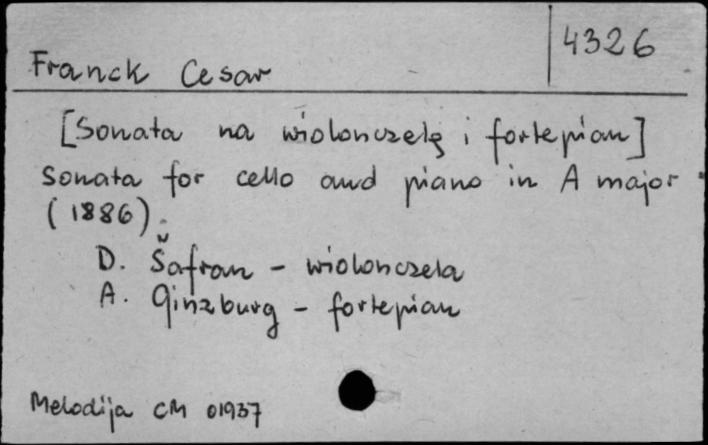 4326
Franck Cesar
[Sonata na wiolonczelę i fortepian]
Sonata for cello and piano in A major
(1886).
D. Šafran - wiolonczela
A. Ginzburg - fortepian
Melodija CM 01937